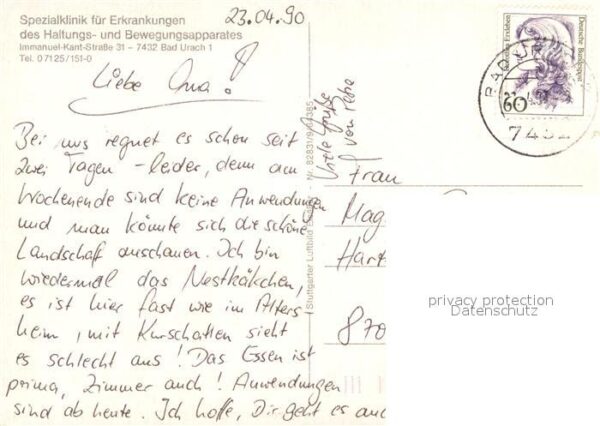 Spezialklinik für Erkrankungen
des Haltungs- und Bewegungsapparates
Immanuel-Kant-Straße 31 - 7432 Bad Urach 1
Tel. 07125/151-0
23.04.90
Liebe Oma!
Bei uns regnet es schon seit
zwei Tagen - leider, denn am
Wochenende sind keine Anwendungen
und man könnte sich die schöne
Landschaft anschauen. Ich bin
wiedermal das Nestkükchen,
es ist hier fast wie im Alters
heim, mit Kurschatten sieht
es schlecht aus! Das Essen ist
prima, Zimmer auch! Anwendungen
sind ab heute. Ich hoffe, Dir geht es auc
Viele Grüße
von
Stuttgarter Luftbild
Frau
Mag
Hart
870
Deutsche Bundespost
60
7432
privacy protection
Datenschutz